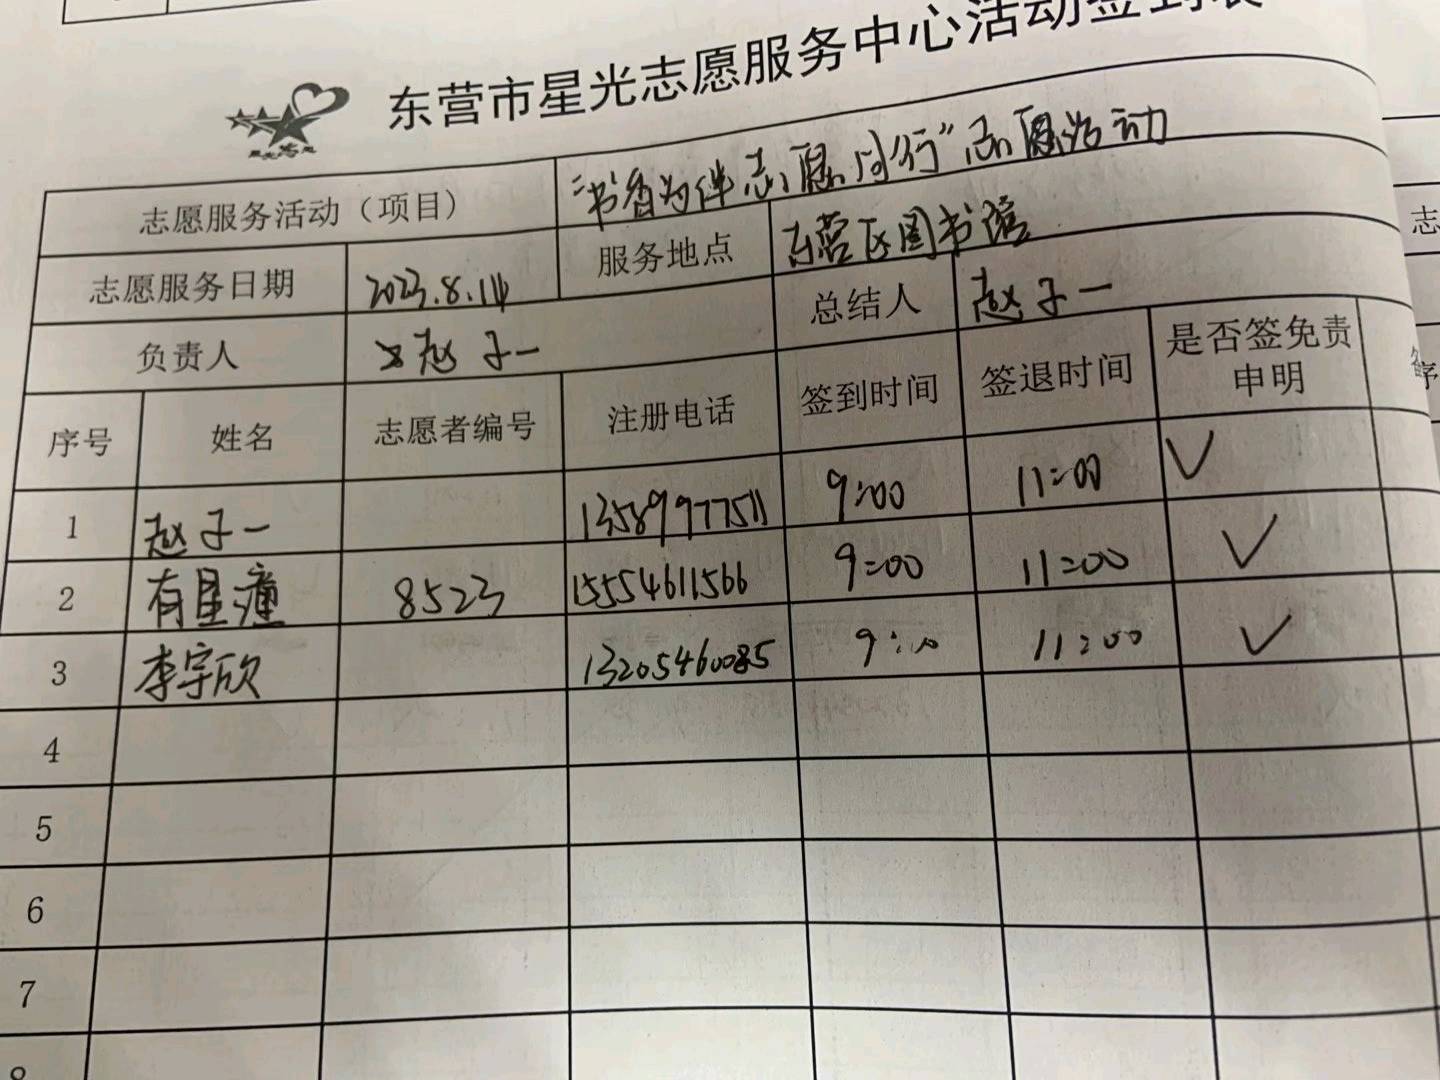 东营市星光志愿服务中心活动签到表
志愿服务活动（项目） “书香为伴志愿同行”志愿活动
志愿服务日期 2023.8.14 服务地点 东营区图书馆
负责人 赵子一 总结人 赵子一
序号 姓名 志愿者编号 注册电话 签到时间 签退时间 是否签免责申明
1 赵子一 13589977511 9:00 11:00 √
2 有星瞳 8523 15554611566 9:00 11:00 √
3 李宇欣 13205460085 9:00 11:00 √
4
5
6
7
8
志
序